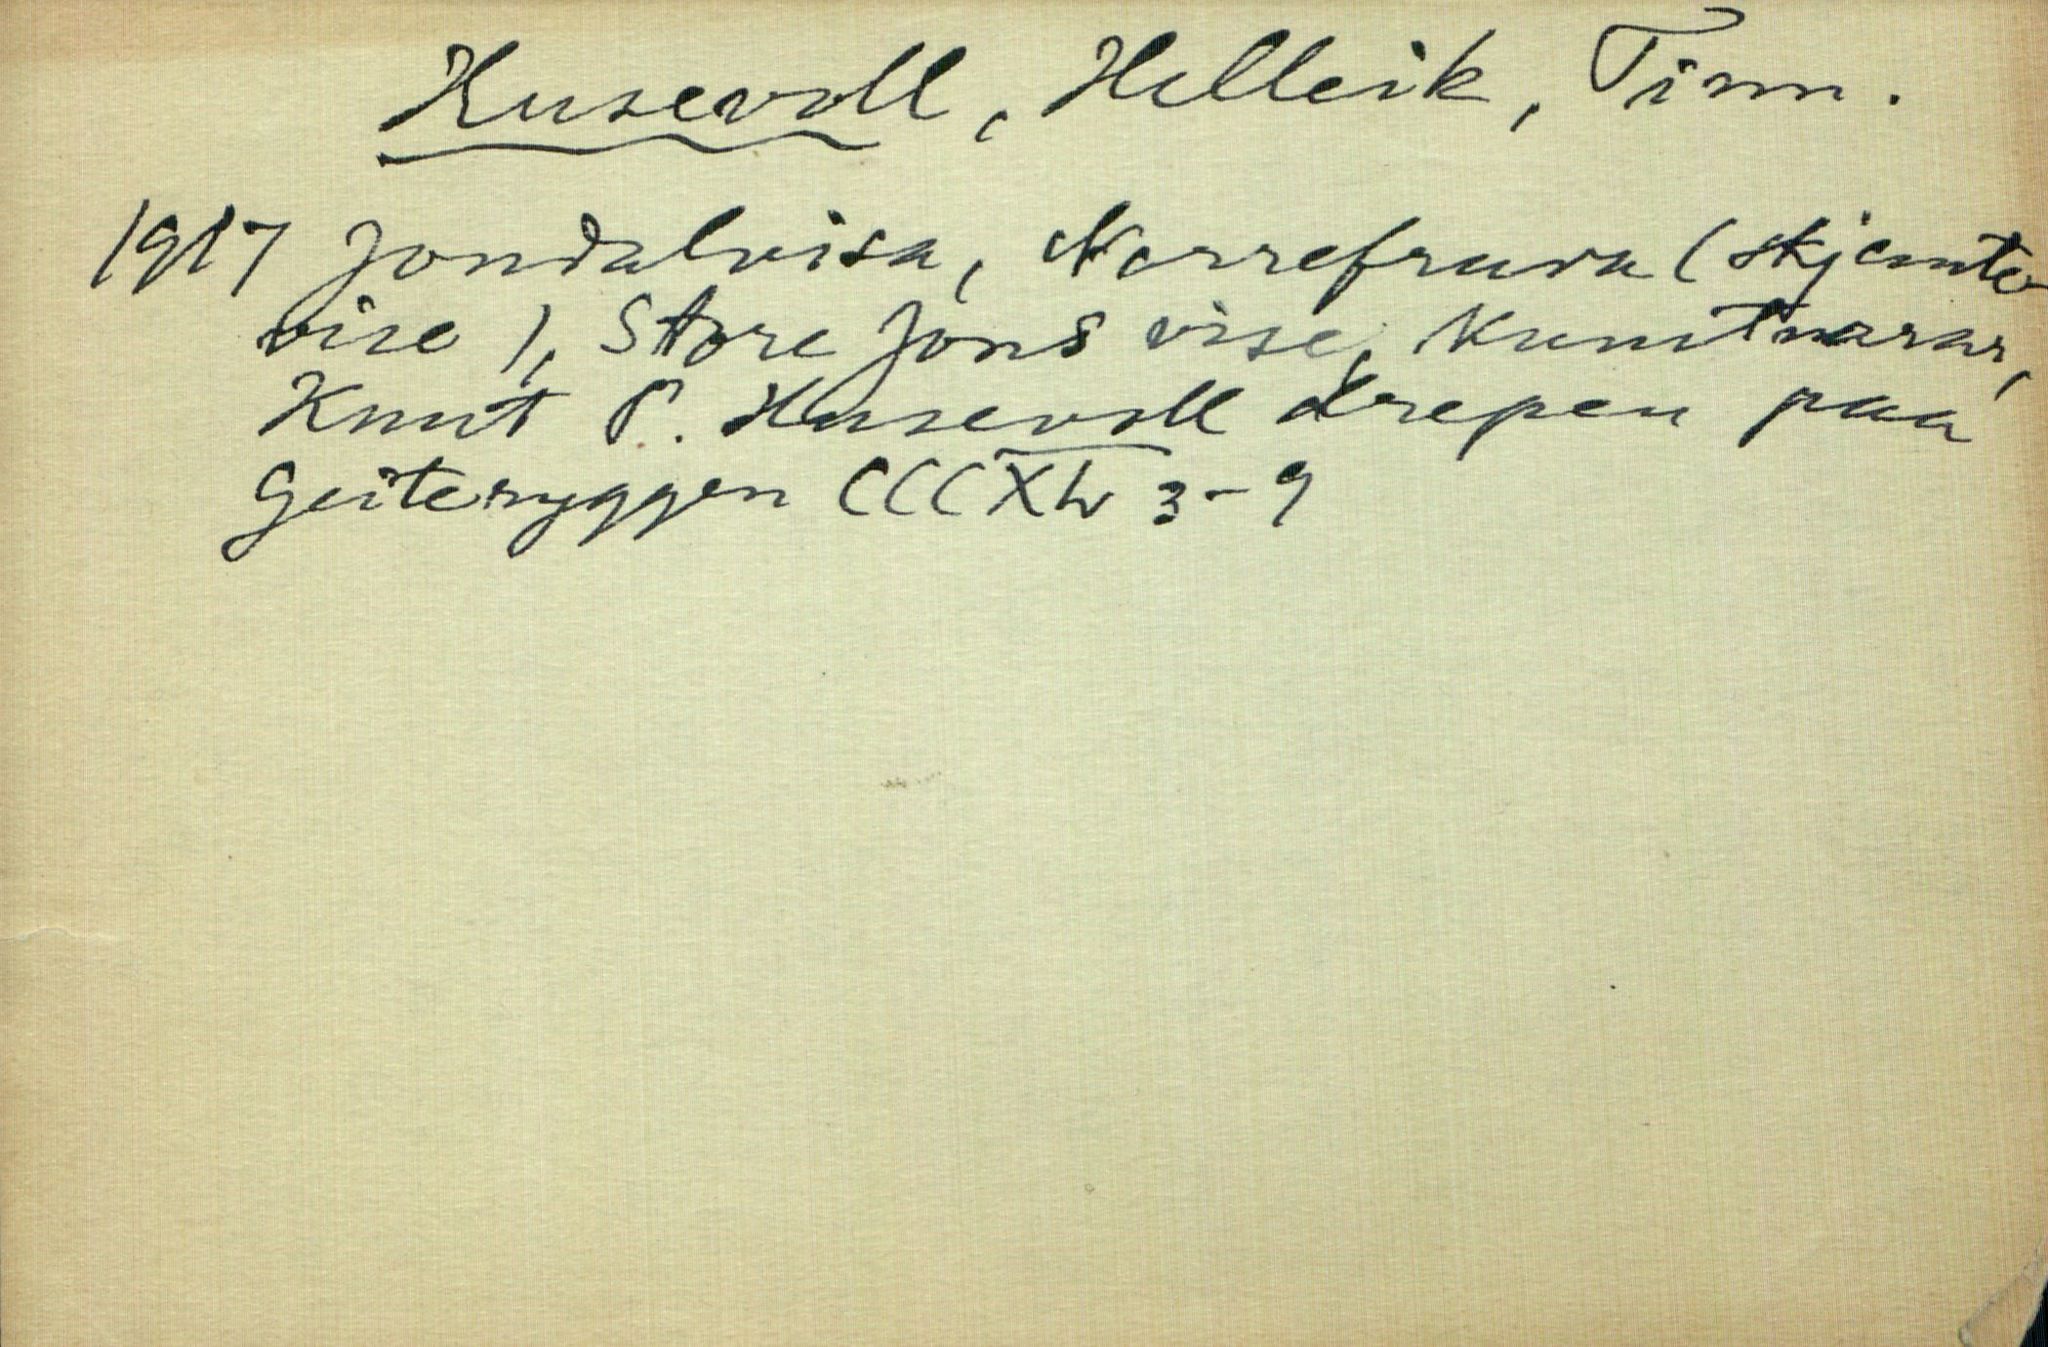 Husevoll, Helleik, Tinn.
1917 Jondalvisa, Norrefruva (skjemte
vise), Store Jons vise, Kunstnarar,
Knut P. Husevoll drepen paa
Geiteryggen CCCXLV 3-9